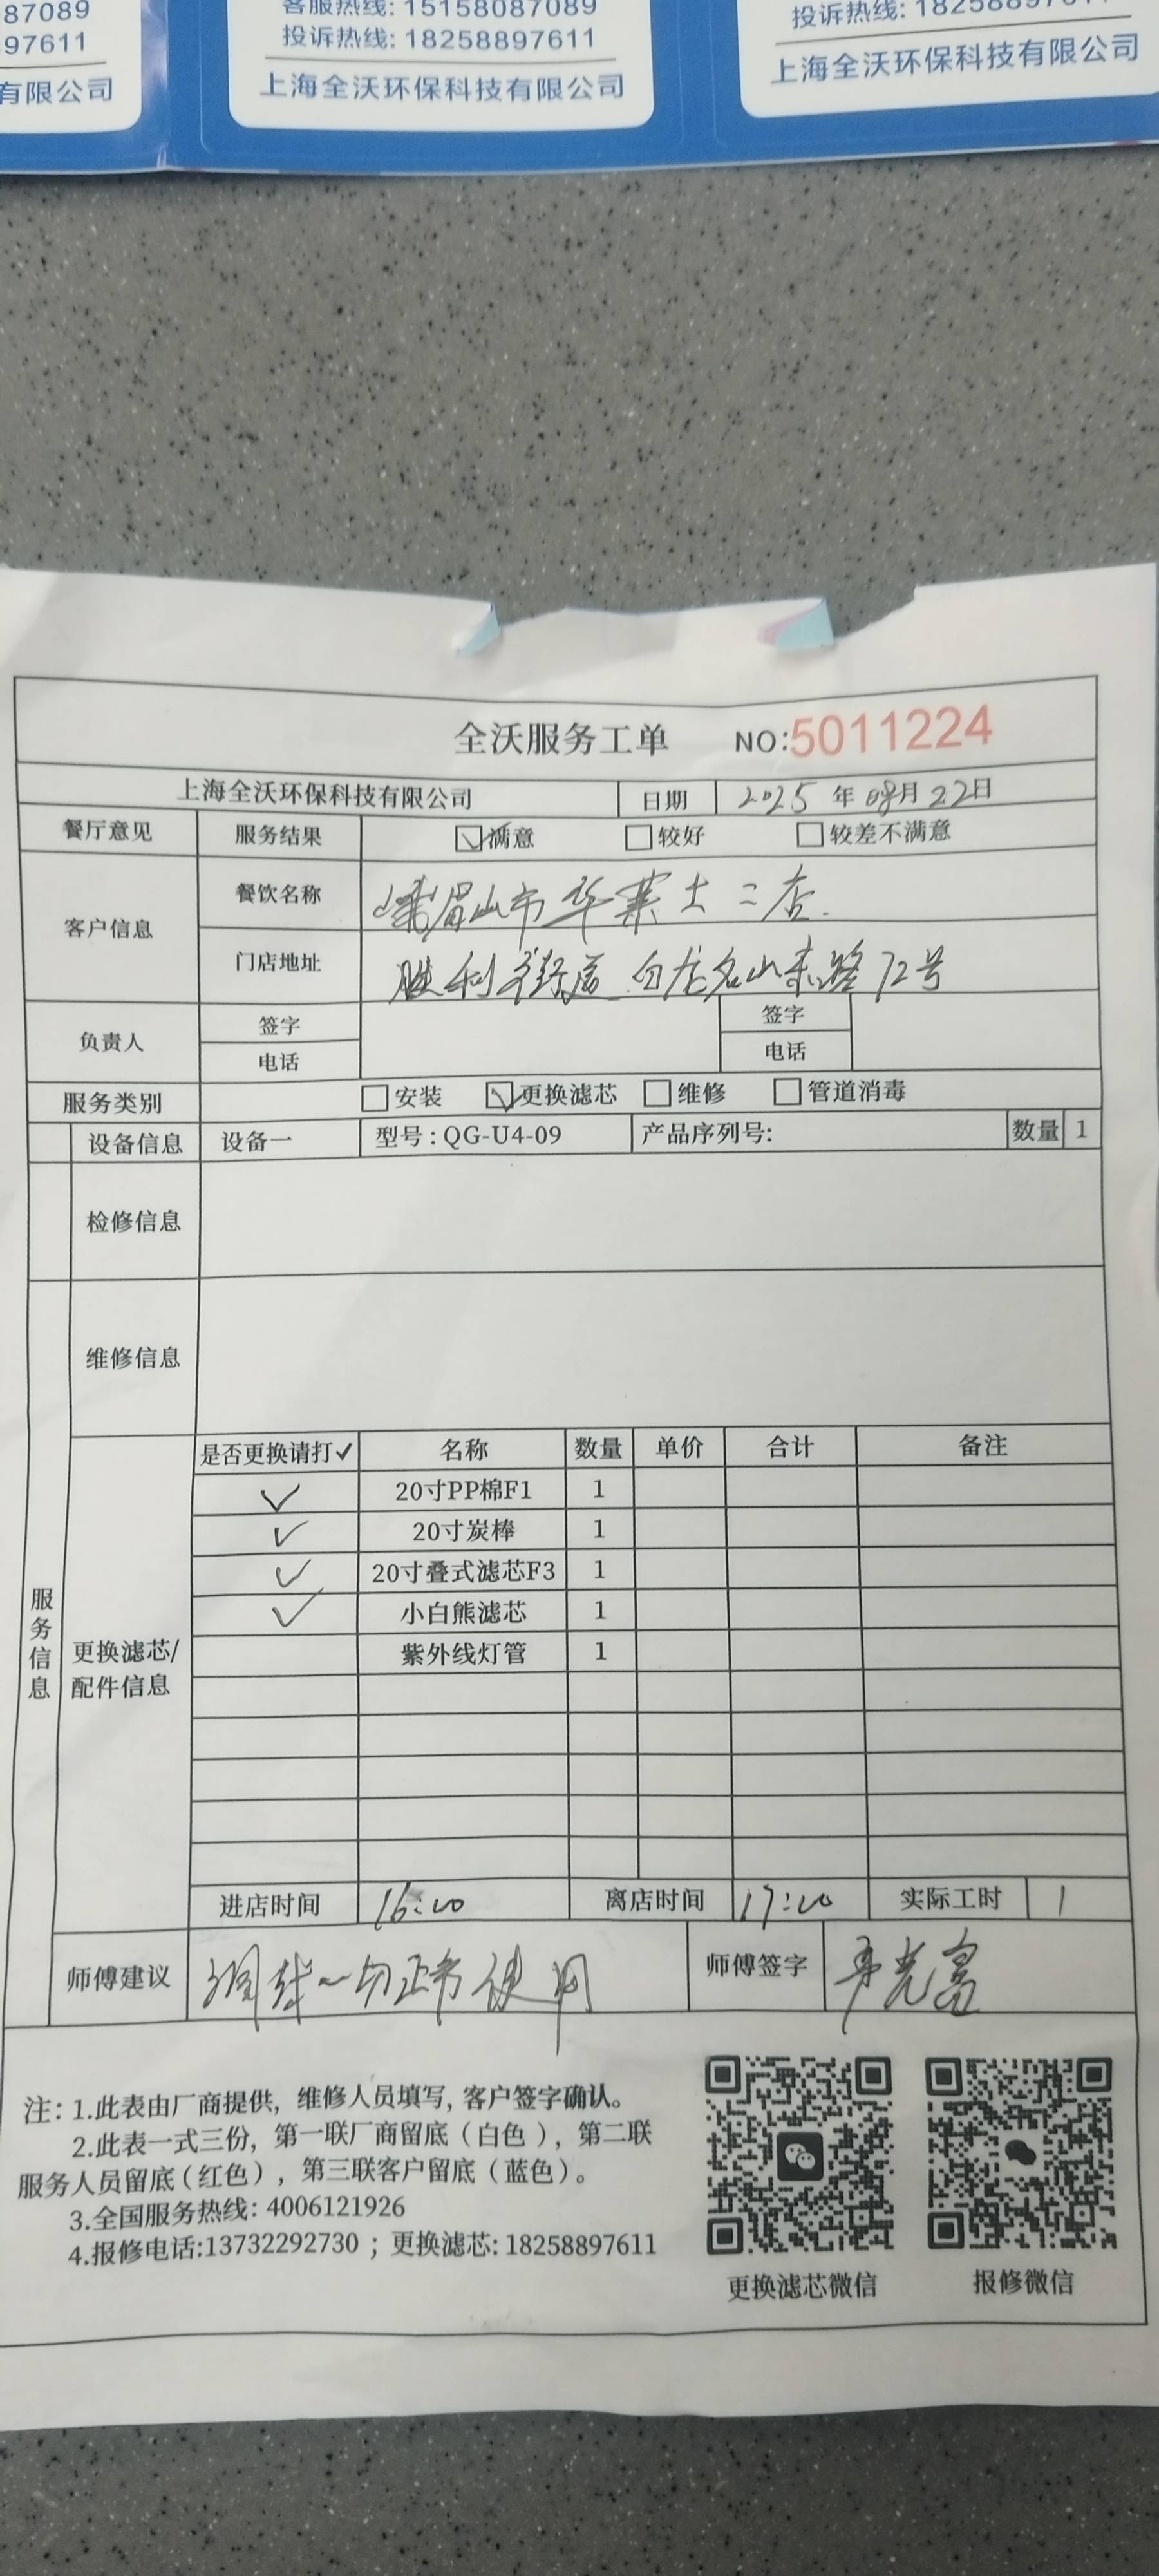 87089
客服热线: 15158087089
投诉热线: 18258897611
97611
投诉热线: 18258897611
有限公司
上海全沃环保科技有限公司
上海全沃环保科技有限公司
全沃服务工单 NO:5011224
上海全沃环保科技有限公司 日期 2025年08月22日
餐厅意见 服务结果 满意 较好 较差不满意
客户信息 餐饮名称 峨眉山市华莱士二店.
门店地址 胜利街道 名山东路72号
负责人 签字 签字
电话 电话
服务类别 安装 更换滤芯 维修 管道消毒
设备信息 设备一 型号: QG-U4-09 产品序列号: 数量 1
检修信息
维修信息
服务信息
更换滤芯/配件信息
是否更换请打✓ 名称 数量 单价 合计 备注
✓ 20寸PP棉F1 1
✓ 20寸炭棒 1
✓ 20寸叠式滤芯F3 1
✓ 小白熊滤芯 1
紫外线灯管 1
进店时间 16:20 离店时间 17:20 实际工时 1
师傅建议 调试一切正常使用 师傅签字
注: 1.此表由厂商提供, 维修人员填写, 客户签字确认。
2.此表一式三份, 第一联厂商留底(白色), 第二联
服务人员留底(红色), 第三联客户留底(蓝色)。
3.全国服务热线: 4006121926
4.报修电话:13732292730 ; 更换滤芯: 18258897611
更换滤芯微信 报修微信